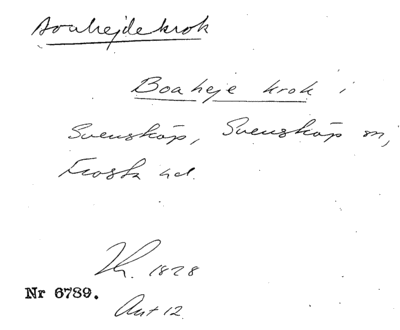 Boahejdekrok
Boaheje krok i
Svensköp, Svensköp sn,
Frosta hd.
Th. 1828
Nr 6789.
Ant 12